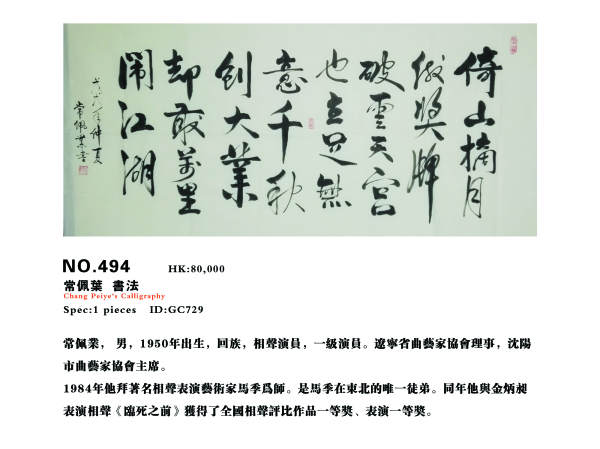 倚山摘月
做獎牌
破雲天宮
也立足無
意千秋
創大業
却敢萬里
鬧江湖
年仲夏
常佩業書
NO.494 HK:80,000
常佩葉 書法
Chang Peiye's Calligraphy
Spec:1 pieces ID:GC729
常佩業， 男，1950年出生，回族，相聲演員，一級演員。遼寧省曲藝家協會理事，沈陽
市曲藝家協會主席。
1984年他拜著名相聲表演藝術家馬季爲師。是馬季在東北的唯一徒弟。同年他與金炳昶
表演相聲《臨死之前》獲得了全國相聲評比作品一等奖、表演一等奖。